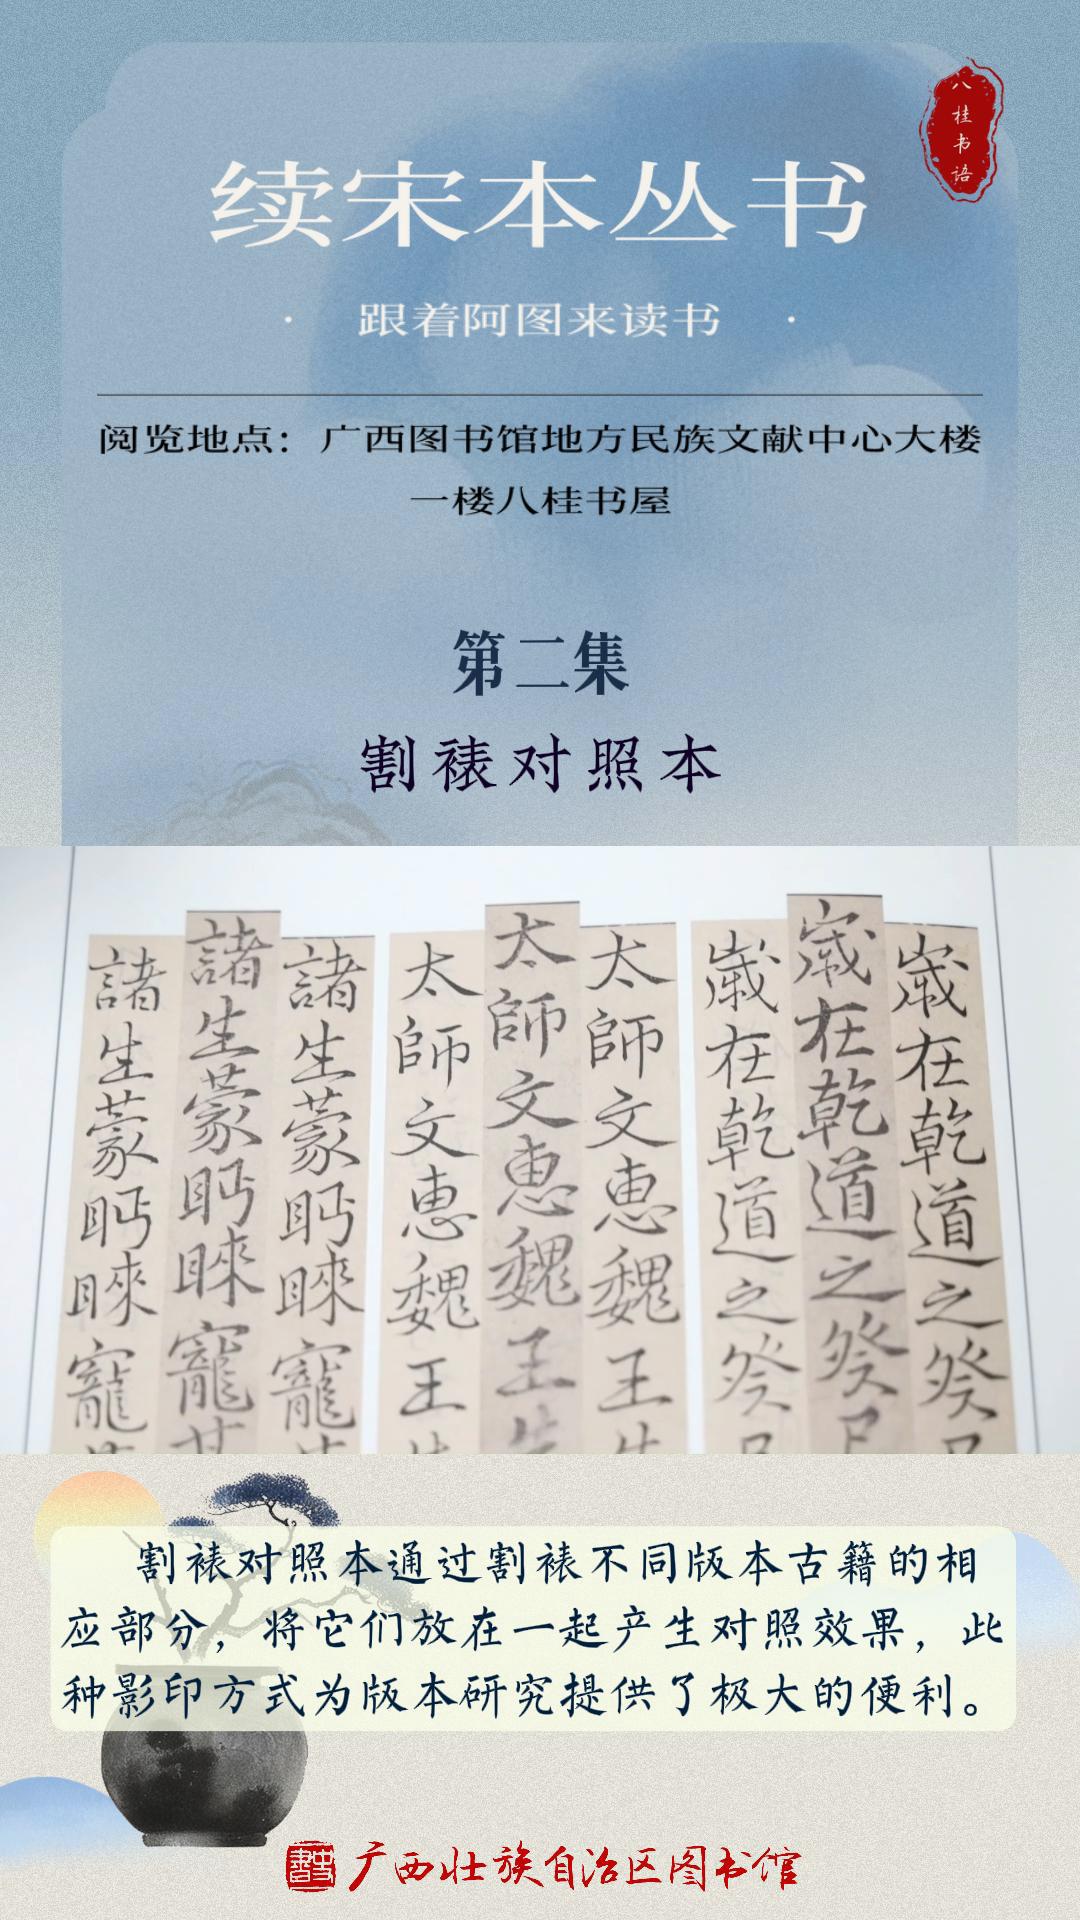 八桂书语
续宋本丛书
· 跟着阿图来读书 ·
阅览地点：广西图书馆地方民族文献中心大楼
一楼八桂书屋
第二集
割裱对照本
諸生蒙眄睞寵
諸生蒙眄睞寵
諸生蒙眄睞寵
太師文惠魏王
太師文惠魏王
太師文惠魏王
歲在乾道之癸
歲在乾道之癸
歲在乾道之癸
割裱对照本通过割裱不同版本古籍的相
应部分，将它们放在一起产生对照效果，此
种影印方式为版本研究提供了极大的便利。
广西壮族自治区图书馆